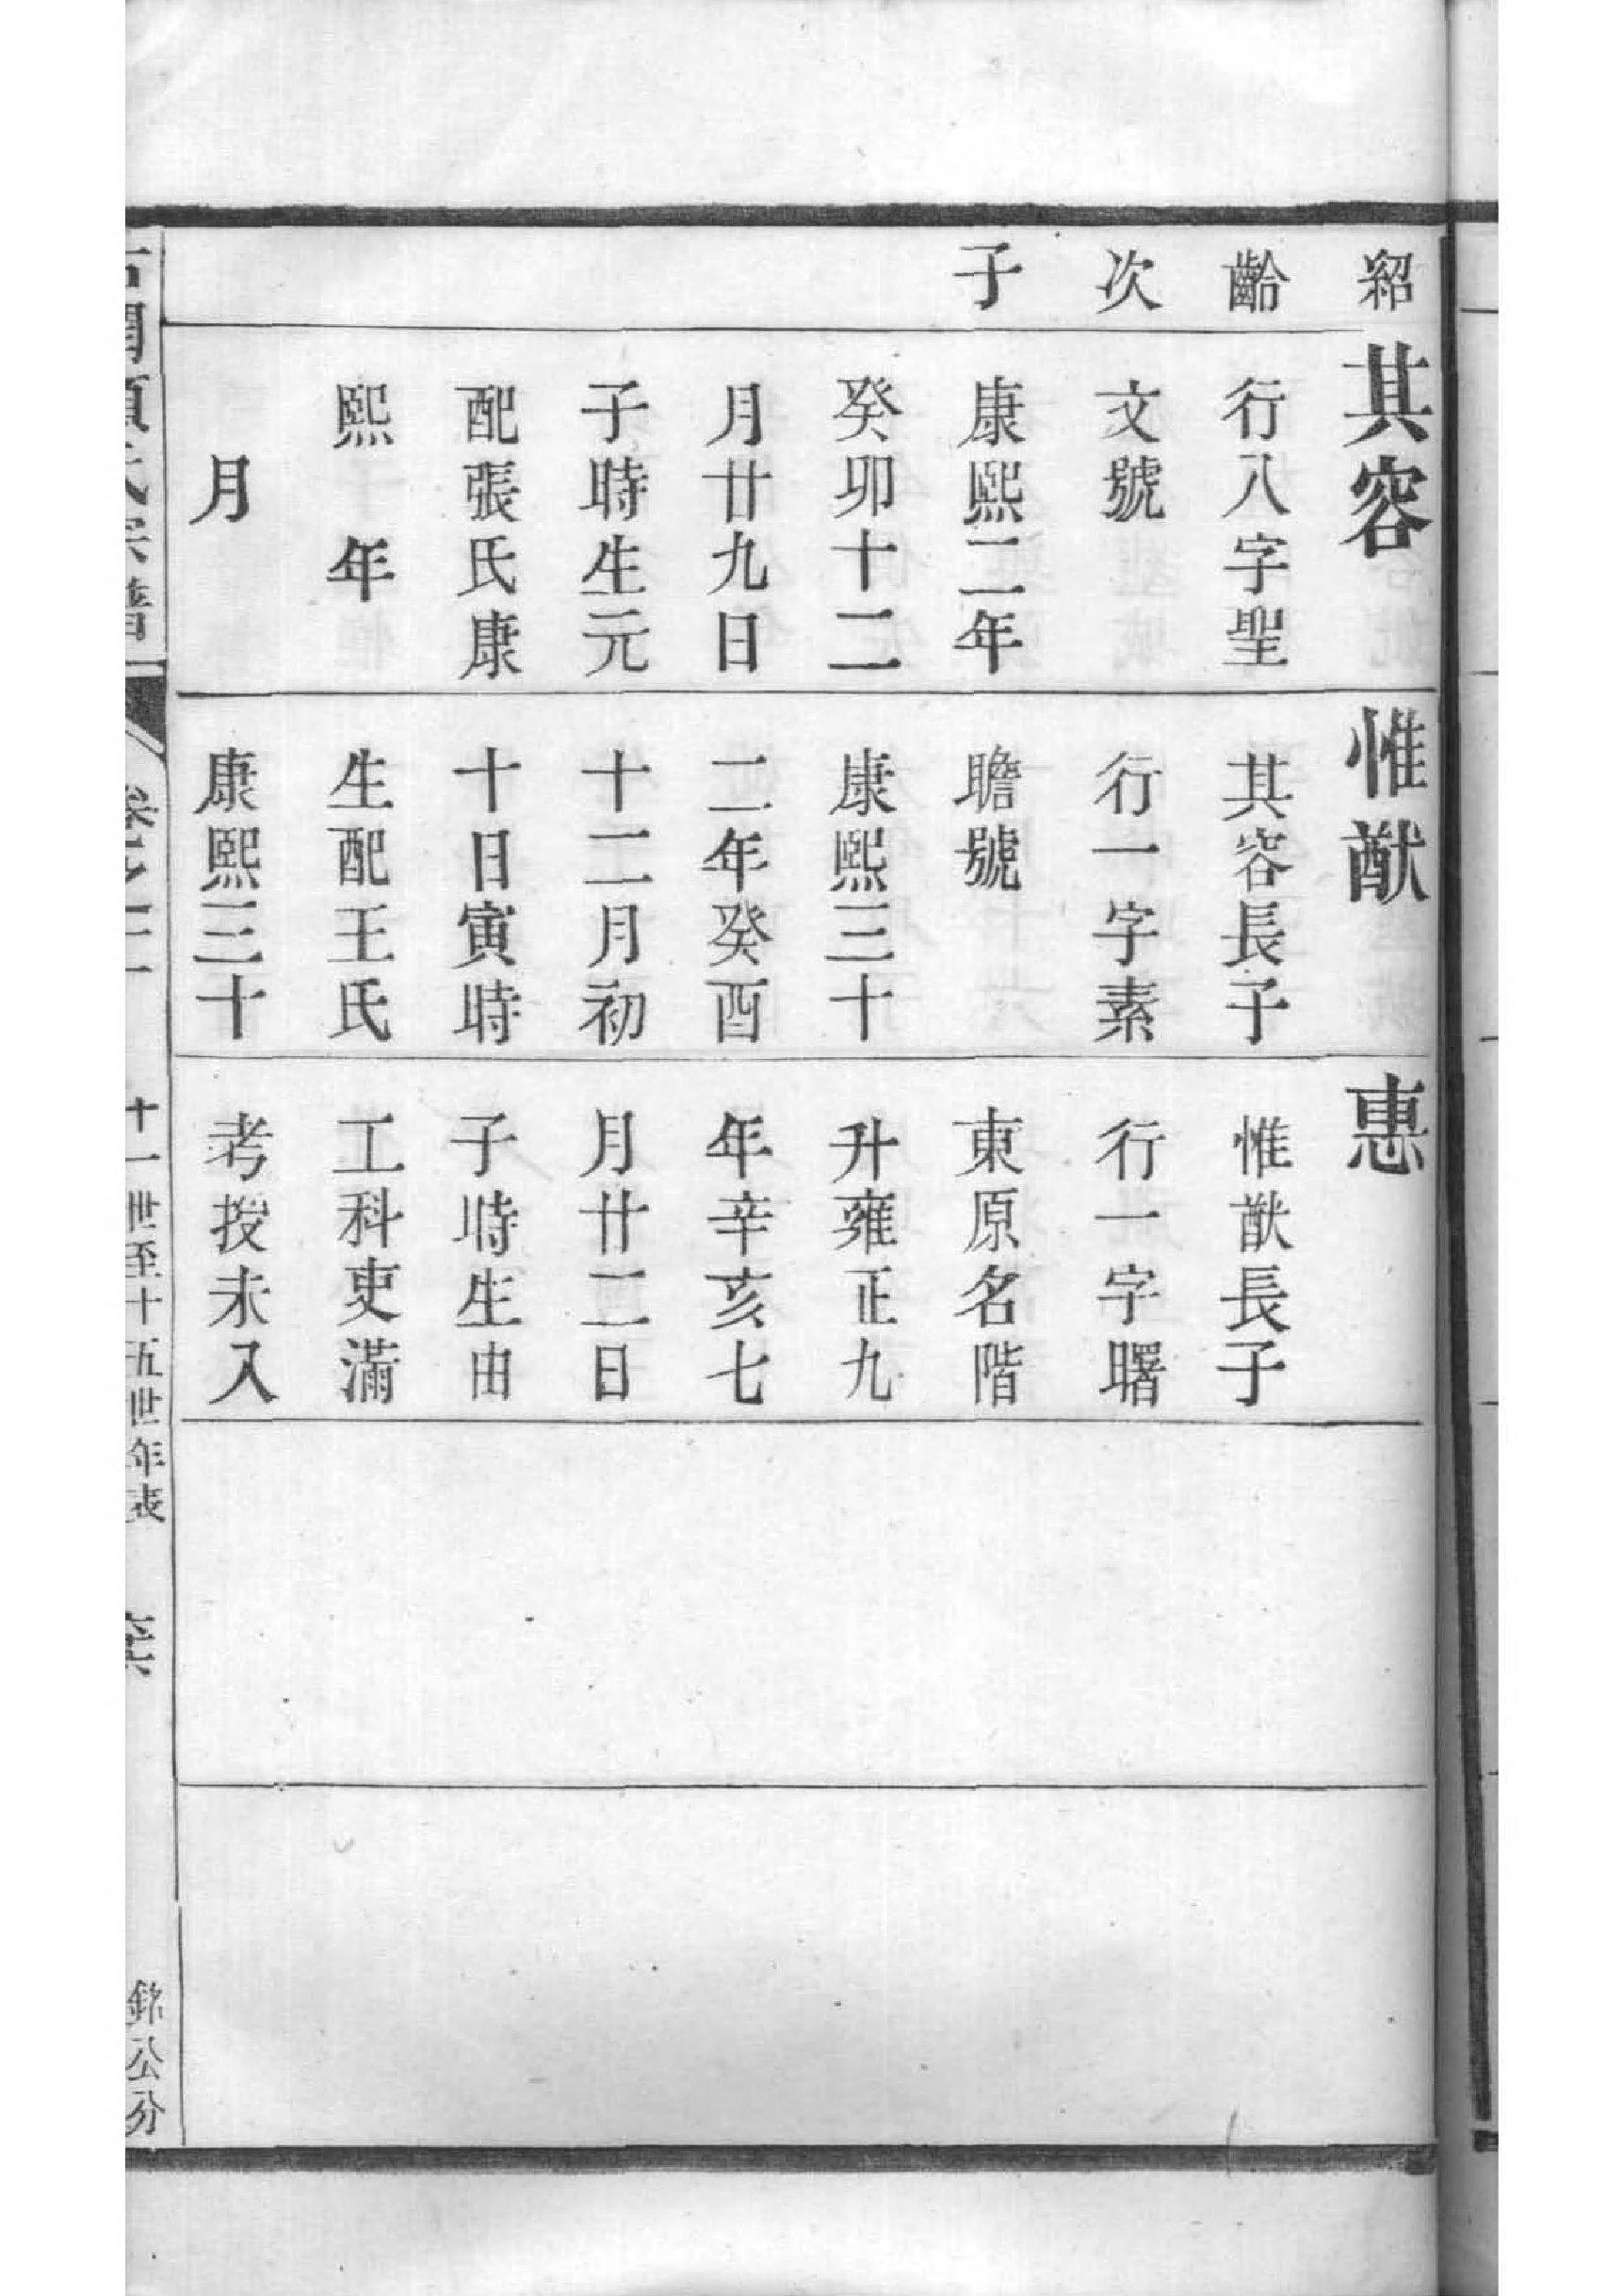 紹
齡
次
子
其容
行八字聖
文號
康熙二年
癸卯十二
月廿九日
子時生元
配張氏康
熙　年
月
惟猷
其容長子
行一字素
瞻號
康熙三十
二年癸酉
十二月初
十日寅時
生配王氏
康熙三十
惠
惟猷長子
行一字曙
東原名階
升雍正九
年辛亥七
月廿二日
子時生由
工科吏滿
考授未入
氏宗譜
卷
十一世至十五世年表
銘公分